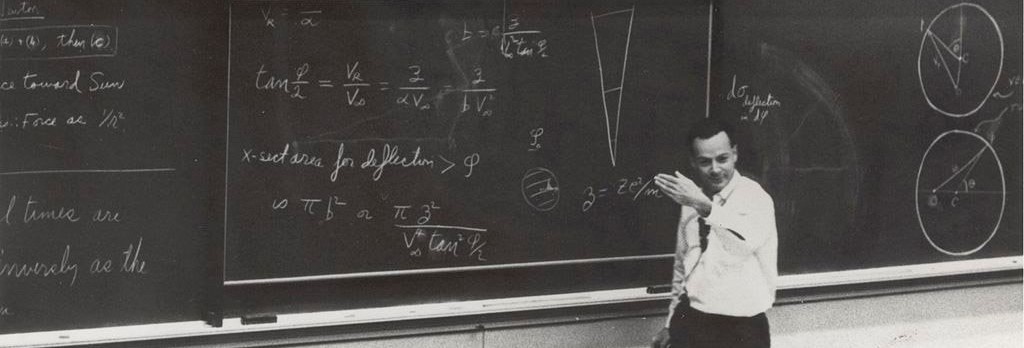 (a) + (b), then (c)
ce toward Sun
∴ Force as 1/R²
l times are
inversely as the
V_R = / α
b = z / V² tan φ/2
tan φ/2 = V_R / V_∞ = z / αV_∞ = z / b V_∞²
x-sect area for deflection > φ
is πb² or π z² / V_∞⁴ tan² φ/2
z = Ze²/m
dσ deflection
φ
C
θ
C